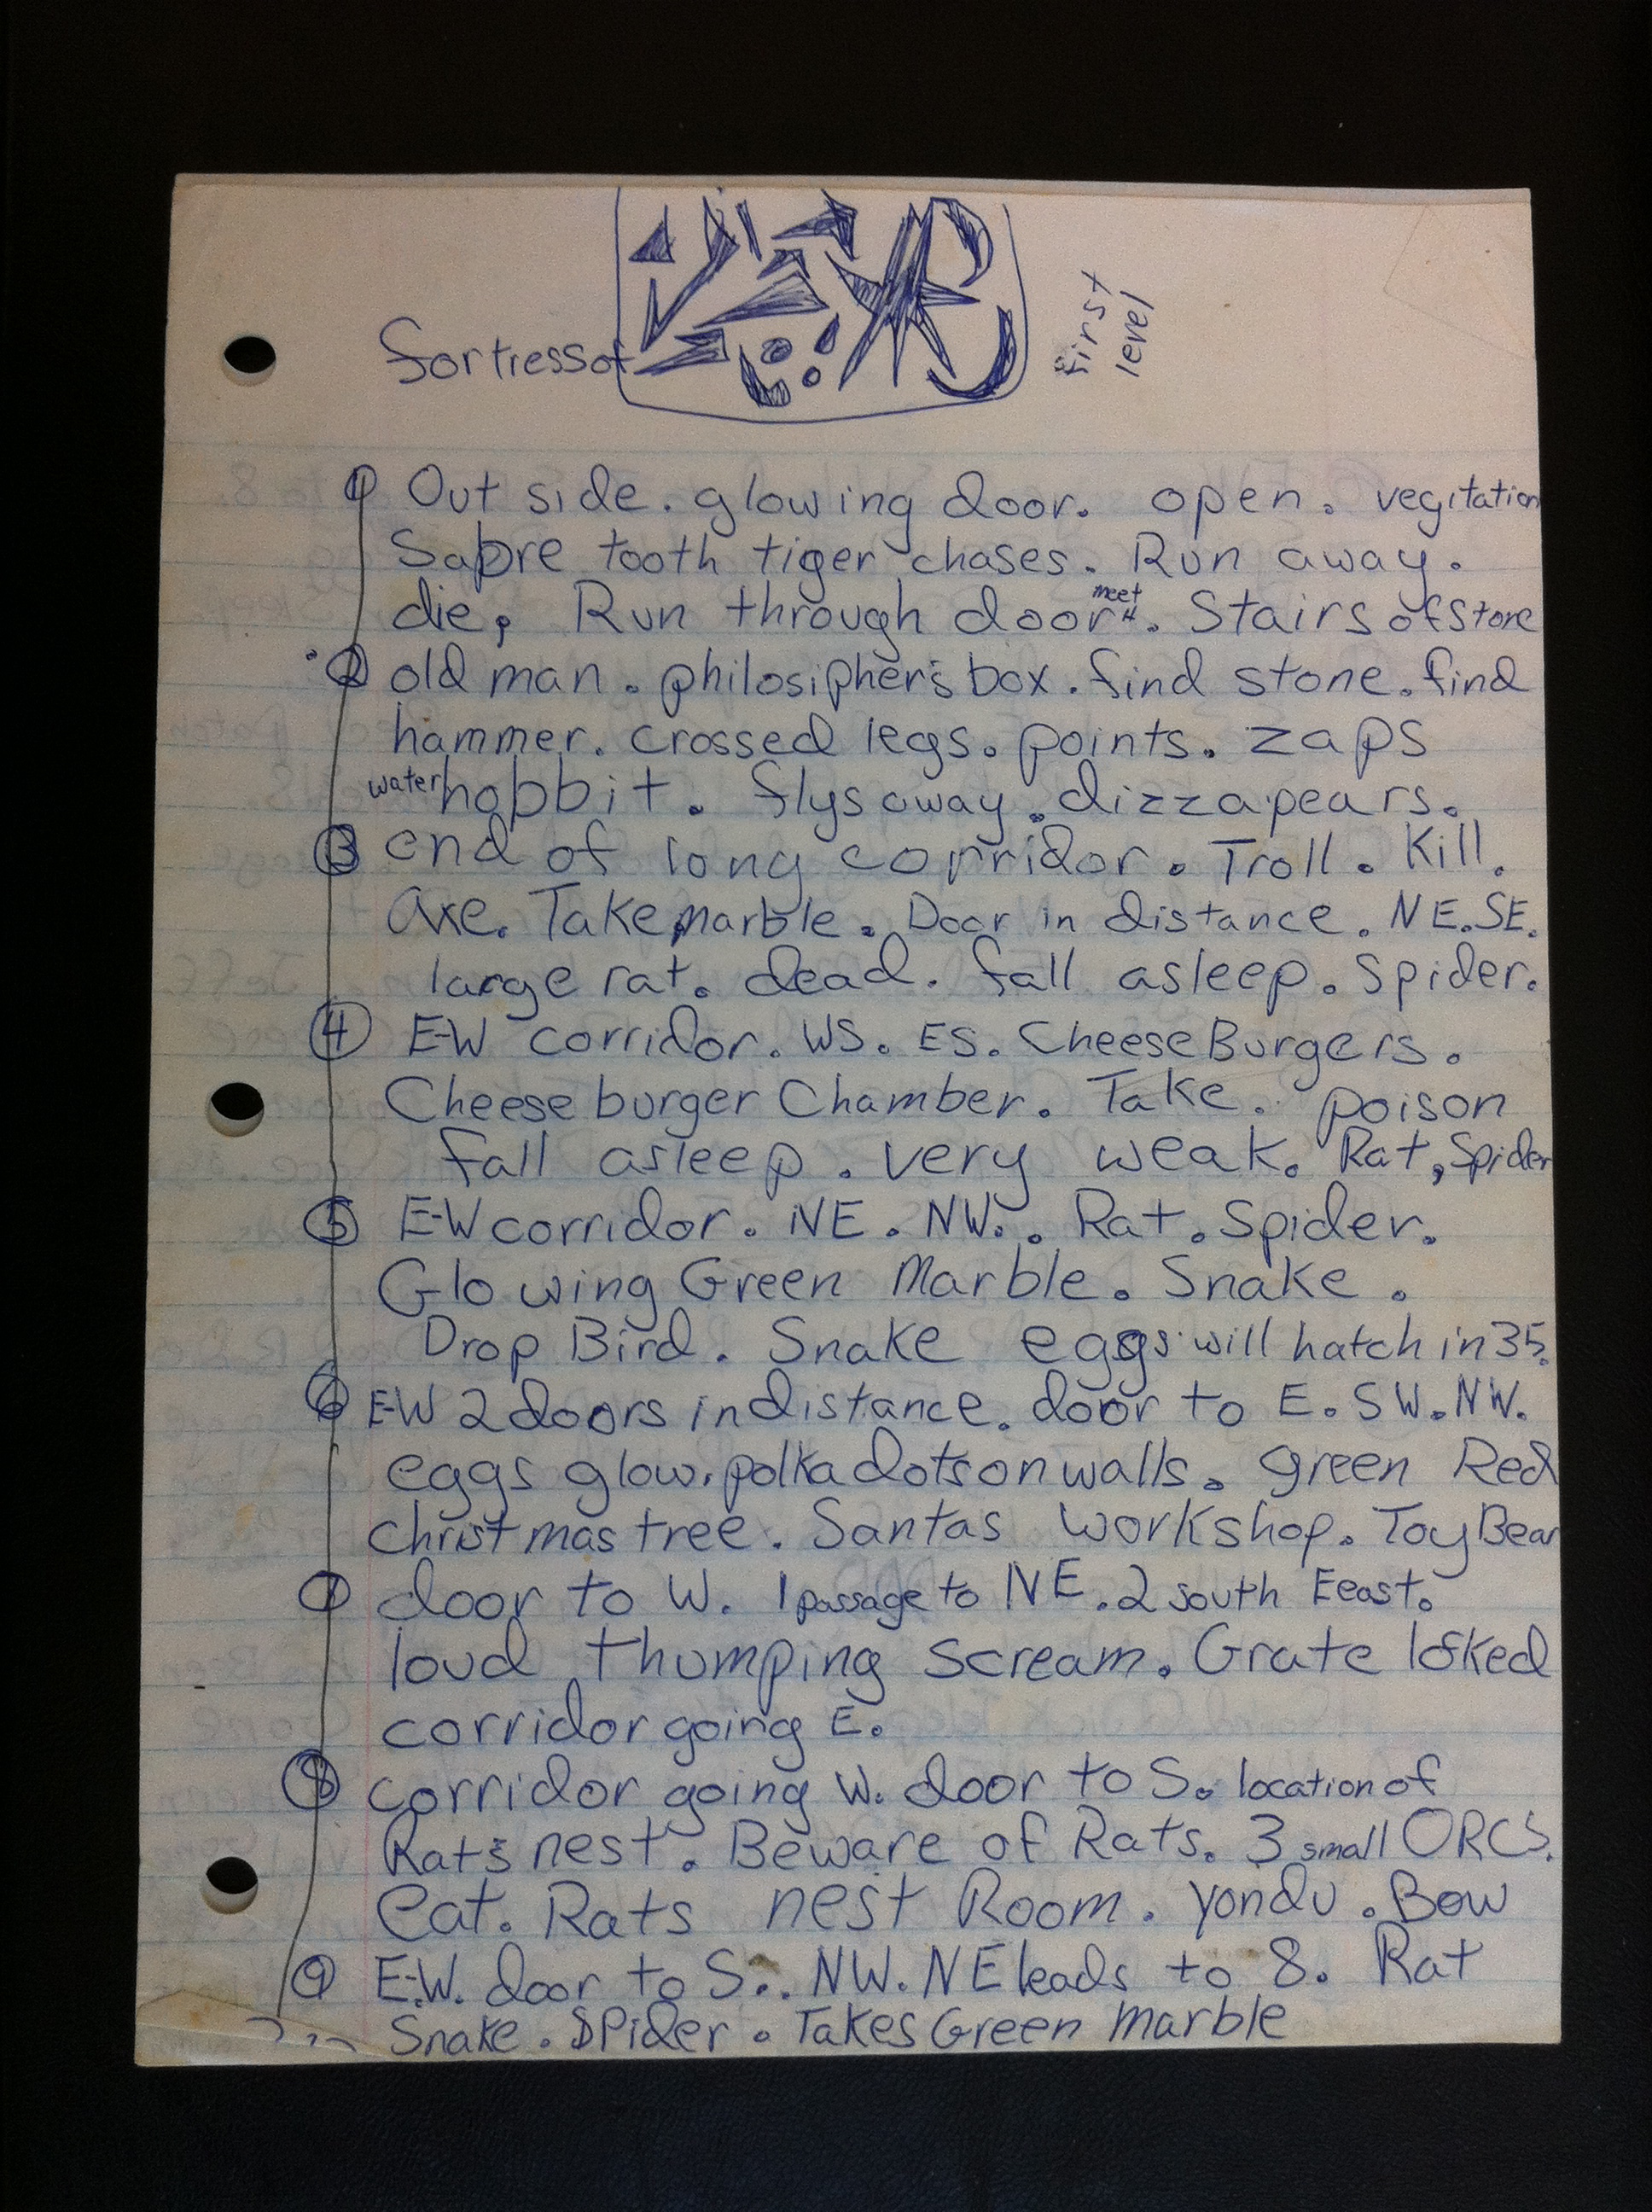 Fortress of
First
level
1 Out side. glowing door. open. vegitation
Sabre tooth tiger chases. Run away.
die. Run through door. meet 4. Stairs of Stone
2 old man. philosipher's box. find stone. find
hammer. crossed legs. points. zaps
water hobbit. flys away. dizzapears.
3 end of long corridor. Troll. Kill.
Axe. Take marble. Door in distance. NE. SE.
large rat. dead. fall asleep. Spider.
4 E-W corridor. WS. ES. Cheese Burgers.
Cheese burger Chamber. Take. poison
fall asleep. very weak. Rat, Spider
5 E-W corridor. NE. NW.. Rat. Spider.
Glowing Green Marble. Snake.
Drop Bird. Snake eggs will hatch in 35.
6 E-W 2 doors in distance. door to E. SW. NW.
eggs glow. polka dots on walls. green Red
christmas tree. Santas workshop. Toy Bear
7 door to W. 1 passage to NE. 2 south Eeast.
loud thumping scream. Grate locked
corridor going E.
8 corridor going W. door to S. location of
Rat's nest. Beware of Rats. 3 small ORCS.
eat. Rats nest Room. Yondu. Bow
9 E.-W. door to S.. NW. NE leads to 8. Rat
Snake. Spider. Takes Green Marble